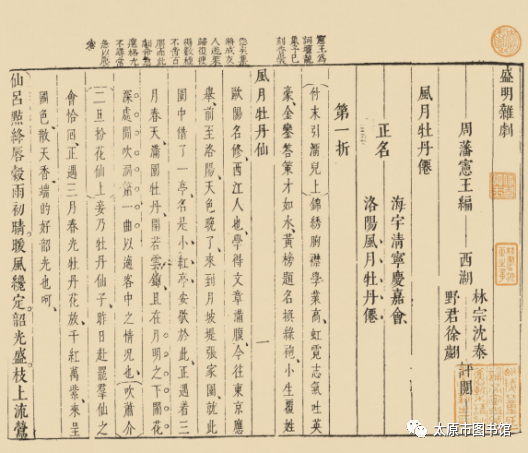 盛明雜劇
周藩憲王編
西湖
林宗沈泰
野君徐翽
評閱
風月牡丹僊
正名
海宇清寧慶嘉會
洛陽風月牡丹僊
第一折
竹末引淨兒上
錦綉腑襟學業高虹霓志氣吐英
豪金鑾答策才如水黃榜題名挺綠袍小生覆姓
風月牡丹仙
一
歐陽名修西江人也學得文章滿腹今往東京應
舉前至洛陽天色晚了來到月坡堤張家園就此
園中借了一亭名是小紅亭安歇於此正遇着三
月春天滿園牡丹開若雲錦且在月明之下開花
深處閒吹洞簫一曲以適客中之情況也
吹簫介
二旦扮花仙上
妾乃牡丹仙子昨日赴羣仙之
會恰囘正遇三月春光牡丹花放千紅萬紫來呈
國色散天香端的好韶光也呵
仙呂點絳唇
穀雨初晴暖風纔定韶光盛枝上流鶯
憲王爲
太原市图书馆